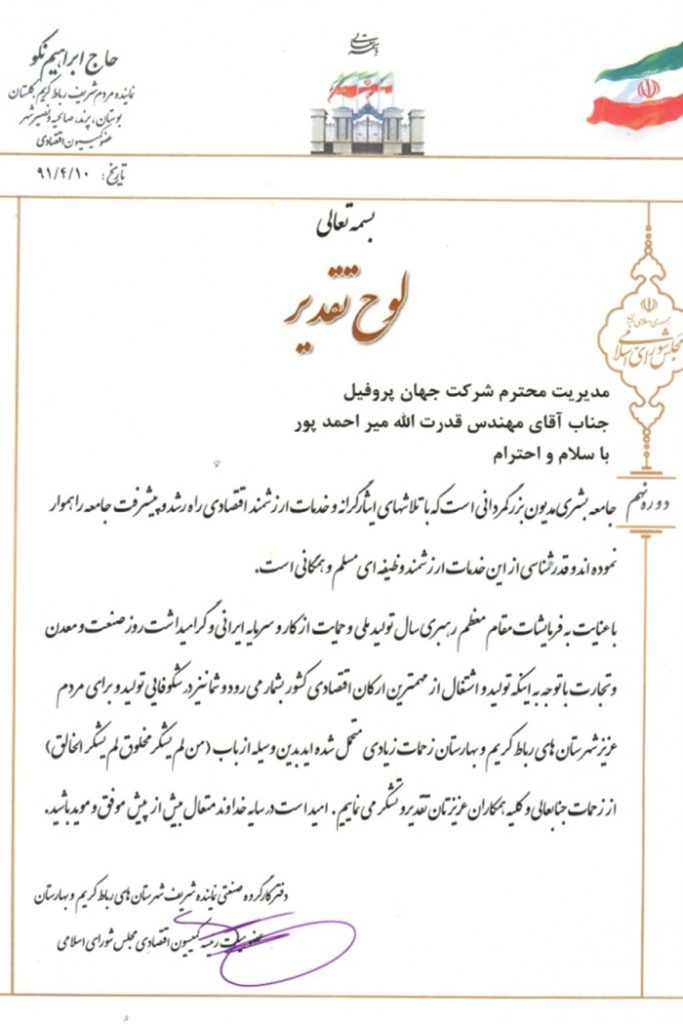 حاج ابراهیم نکو
نماینده مردم شریف رباط کریم، گلستان
بوستان، پرند، صالحیه و نصیرشهر
عضو کمیسیون اقتصادی
تاریخ: ۹۱/۴/۱۰
بسمه تعالی
لوح تقدیر
جمهوری اسلامی ایران
مجلس شورای اسلامی
دوره نهم
مدیریت محترم شرکت جهان پروفیل
جناب آقای مهندس قدرت الله میر احمد پور
با سلام و احترام
جامعه بشری مدیون بزرگمردانی است که با تلاشهای ایثارگرانه و خدمات ارزشمند اقتصادی راه رشد و پیشرفت جامعه را هموار
نموده اند و قدرشناسی از این خدمات ارزشمند وظیفه ای مسلم و همگانی است.
با عنایت به فرمایشات مقام معظم رهبری سال تولید ملی و حمایت از کار و سرمایه ایرانی و گرامیداشت روز صنعت و معدن
و تجارت با توجه به اینکه تولید و اشتغال از مهمترین ارکان اقتصادی کشور بشمار می رود و شما نیز در شکوفایی تولید و برای مردم
عزیز شهرستان های رباط کریم و بهارستان زحمات زیادی متحمل شده اید بدین وسیله از باب (من لم یشکر مخلوق لم یشکر الخالق)
از زحمات جنابعالی و کلیه همکاران عزیزتان تقدیر و تشکر می نماییم. امید است در سایه خداوند متعال بیش از پیش موفق و موید باشید.
دفتر کارگروه صنعتی نماینده شریف شهرستان های رباط کریم و بهارستان
کمیسیون اقتصادی مجلس شورای اسلامی